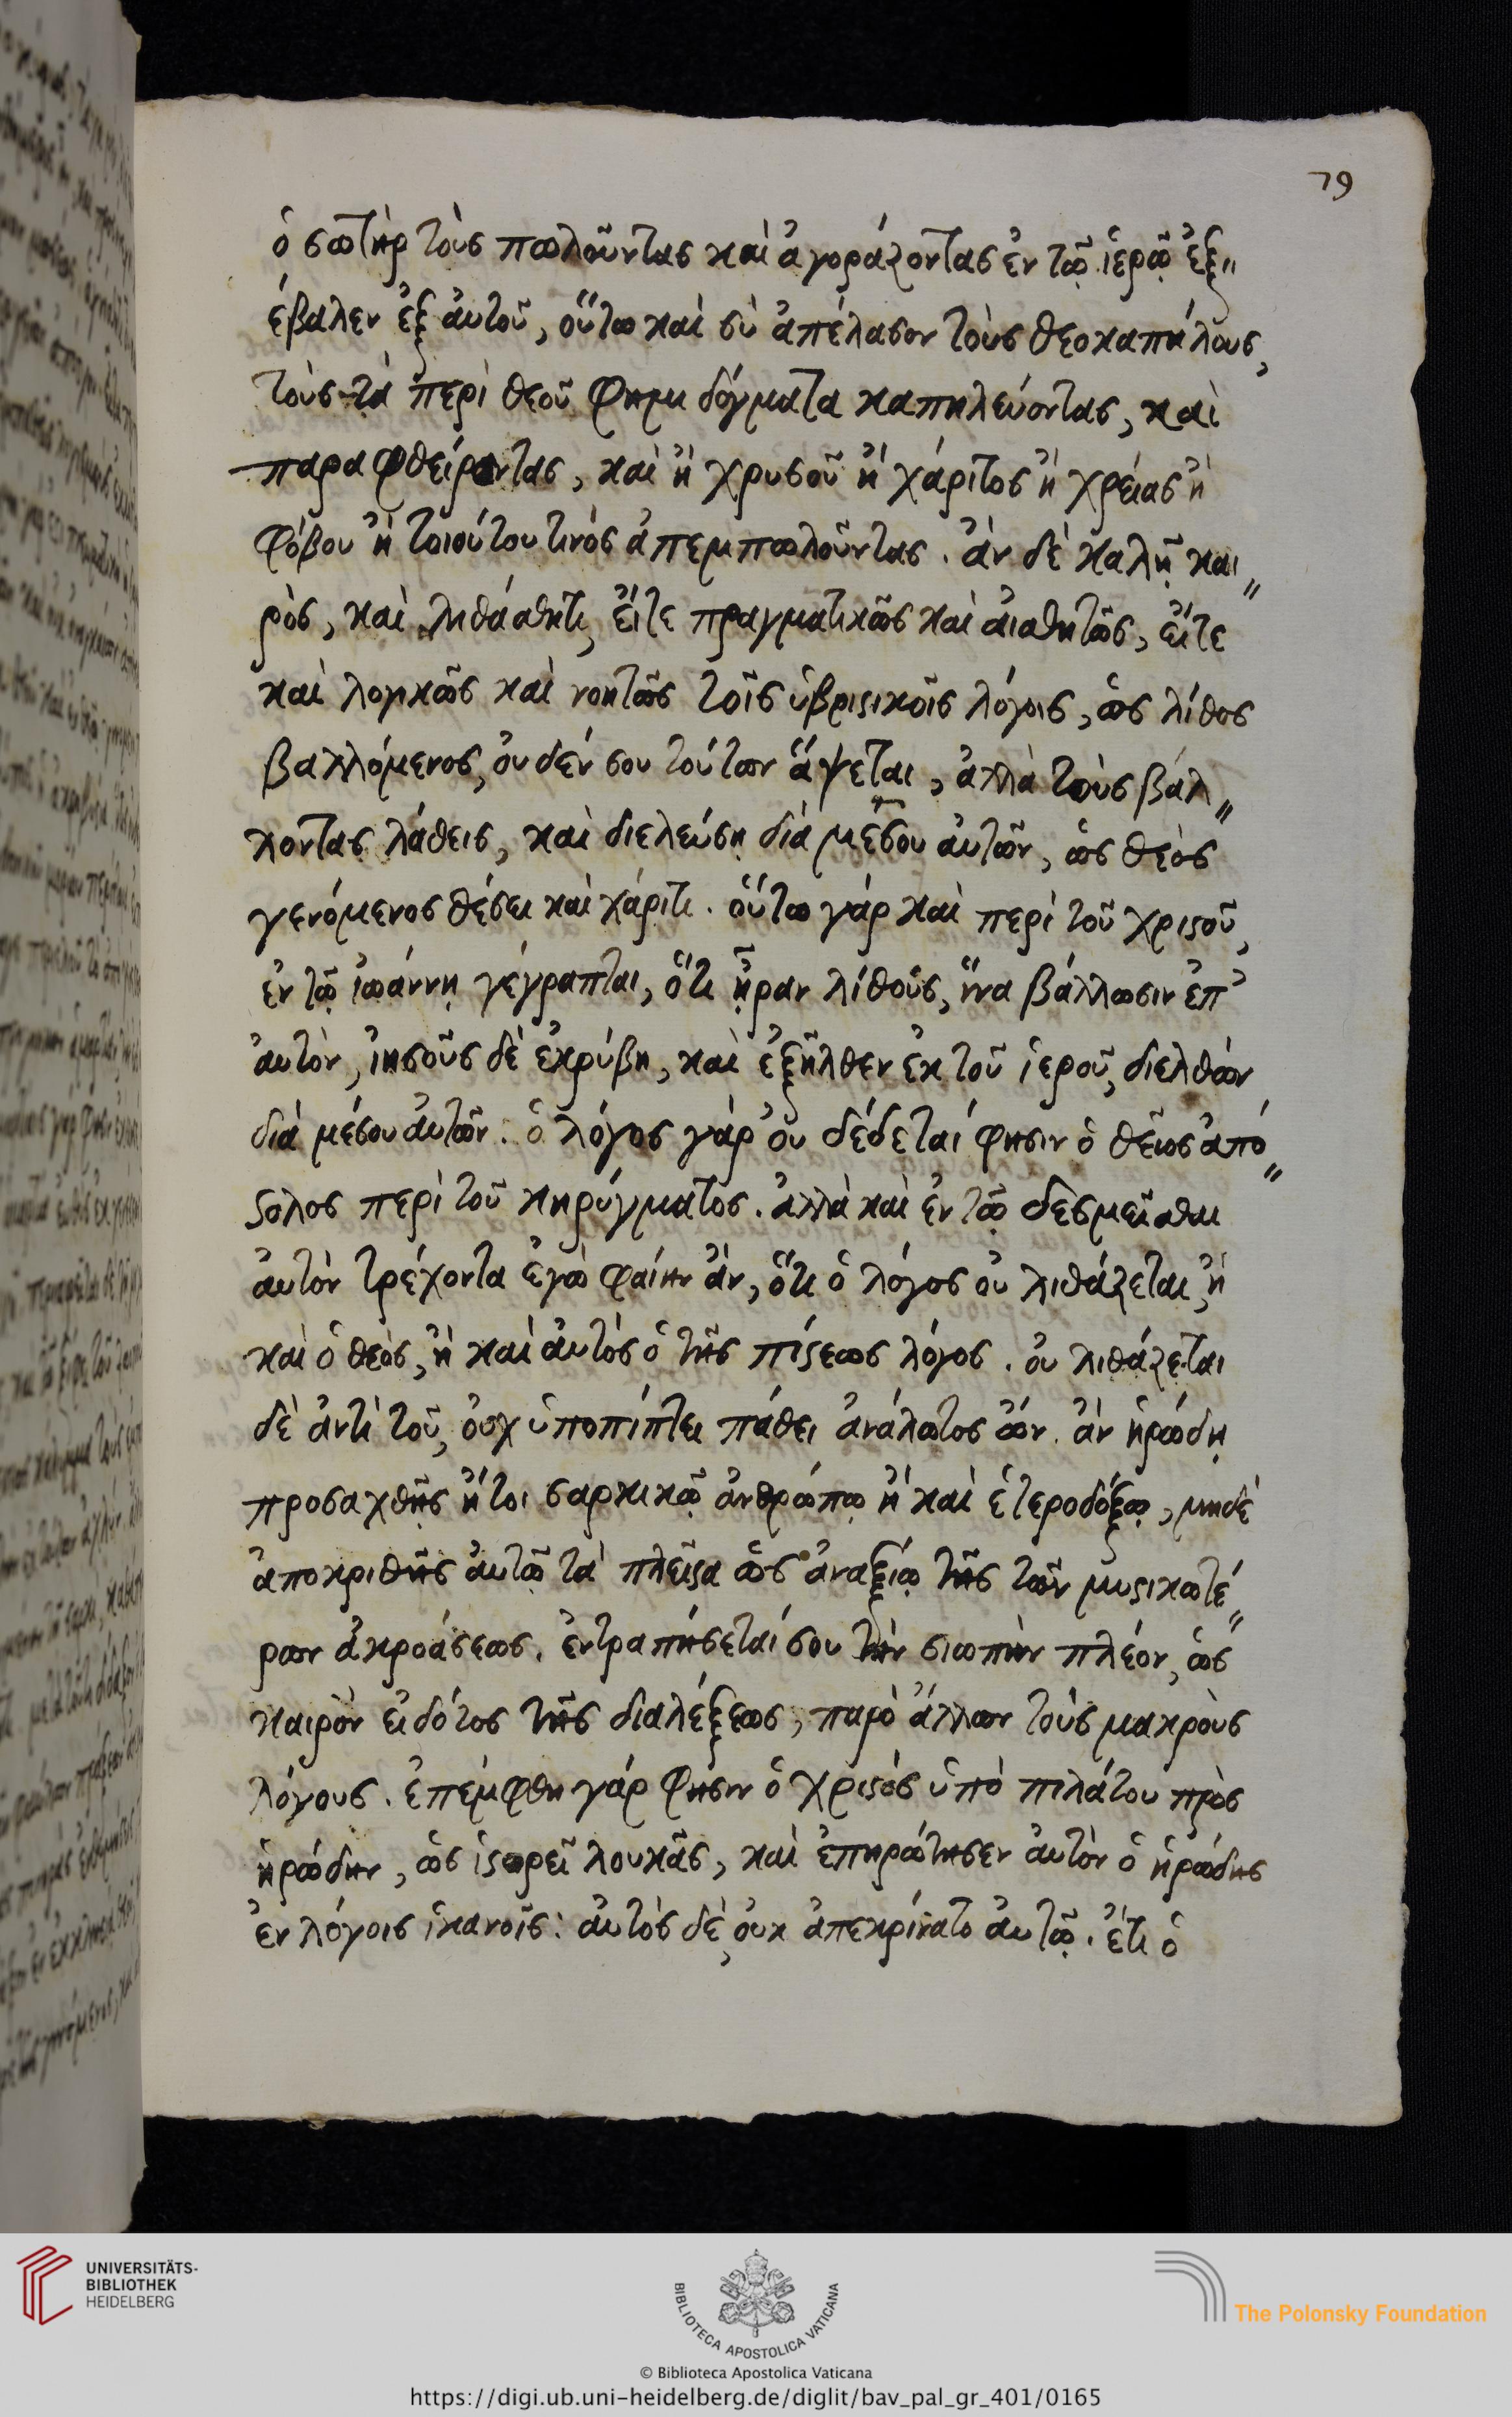 79
ὁ σωτὴρ τοὺς πωλοῦντας καὶ ἀγοράζοντας ἐν τῷ ἱερῷ ἐξ〃
έβαλεν ἐξ ἀυτοῦ, οὕτω καὶ σὺ ἀπέλασον τοὺς θεοκαπήλους,
τοὺς τὰ περὶ θεοῦ φημι δόγματα καπηλεύοντας, καὶ
παραφθείροντας, καὶ ἢ χρυσοῦ ἢ χάριτος ἢ χρείας ἢ
φόβου ἢ τοιούτου τινὸς ἀπεμπωλοῦντας. ἂν δὲ καλῇ και〃
ρὸς, καὶ λιθάσθητι, εἴτε πραγματικῶς καὶ αἰσθητῶς, εἴτε
καὶ λογικῶς καὶ νοητῶς τοῖς ὑβριϛικοῖς λόγοις, ὡς λίθος
βαλλόμενος, οὐδέν σου τούτων ἅψεται, ἀλλὰ τοὺς βάλ〃
λοντας λάθεις, καὶ διελεύσῃ διὰ μέσου ἀυτῶν, ὡς θεὸς
γενόμενος θέσει καὶ χάριτι. οὕτω γάρ καὶ περὶ τοῦ χριϛοῦ,
ἐν τῷ ἰωάννῃ γέγραπται, ὅτι ᾖραν λίθους, ἵνα βάλλωσιν ἐπ᾽
ἀυτὸν, ἰησοῦς δὲ ἐκρύβη, καὶ ἐξῆλθεν ἐκ τοῦ ἱεροῦ, διελθὼν
διὰ μέσου ἀυτῶν. ὁ λόγος γὰρ οὐ δέδεταί φησιν ὁ θεῖος ἀπό〃
ϛολος περὶ τοῦ κηρύγματος. ἀλλὰ καὶ ἐν τῷ δεσμεῖσθαι
ἀυτὸν τρέχοντα ἐγὼ φαίην ἂν, ὅτι ὁ λόγος οὐ λιθάζεται, ἢ
καὶ ὁ θεὸς, ἢ καὶ ἀυτὸς ὁ τῆς πίϛεως λόγος. οὐ λιθάζεται
δὲ ἀντὶ τοῦ, οὐχ ὑποπίπτει πάθει ἀνάλωτος ὤν. ἂν ἡρώδῃ
προσαχθῇς ἤτοι σαρκικῷ ἀνθρώπῳ ἢ καὶ ἑτεροδόξῳ, μηδὲ
ἀποκριθῇς ἀυτῷ τὰ πλεῖϛα ὡς ἀναξίῳ τῆς τῶν μυϛικωτέ〃
ρων ἀκροάσεως. ἐντραπήσεταί σου τὴν σιωπὴν πλέον, ὡς
καιρὸν εἰδότος τῆς διαλέξεως, παρὸ ἄλλων τοὺς μακροὺς
λόγους. ἐπέμφθη γάρ φησιν ὁ χριϛὸς ὑπὸ πιλάτου πρὸς
ἡρώδην, ὡς ἱϛορεῖ λουκᾶς, καὶ ἐπηρώτησεν ἀυτὸν ὁ ἡρώδης
ἐν λόγοις ἱκανοῖς: ἀυτὸς δὲ, οὐκ ἀπεκρίνατο ἀυτῷ. ἔτι ὁ
UNIVERSITÄTS-
BIBLIOTHEK
HEIDELBERG
BIBLIOTECA APOSTOLICA VATICANA
The Polonsky Foundation
© Biblioteca Apostolica Vaticana
https://digi.ub.uni-heidelberg.de/diglit/bav_pal_gr_401/0165